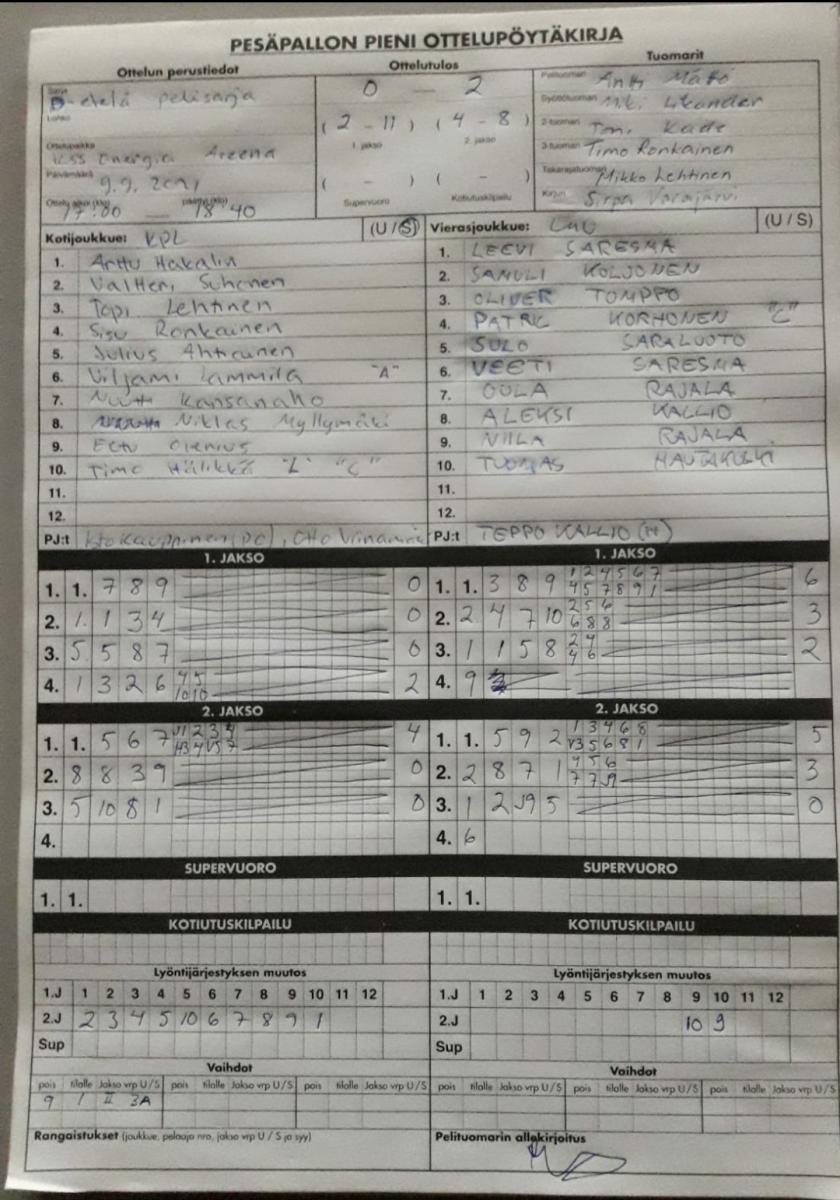 PESÄPALLON PIENI OTTELUPÖYTÄKIRJA
Ottelun perustiedot
Ottelutulos
Tuomarit
Sarja
D-etelä pelisarja
Lohko
Ottelupaikka
KSS Energia Areena
Päivämäärä
9.9. 2021
17:00 — 18:40
0 — 2
( 2 - 11 ) ( 4 - 8 )
1. jakso 2. jakso
( - ) ( - )
Supervuoro Kotiutuskilpailu
Pelituomari Antti
Syöttötuomari
2-tuomari Toni
3-tuomari Timo Ronkainen
Takarajatuomari Mikko Lehtinen
Kirjuri Sirpa
Kotijoukkue: KPL (U / S)
1. Arttu Hakalin
2. Valtteri Suhonen
3. Topi Lehtinen
4. Sisu Ronkainen
5. Julius Ahtiainen
6. Viljami Lammila "A"
7. Nuutti Kansanaho
8. Niklas Myllymäki
9. Eetu
10. Timo "L" "C"
11.
12.
PJ:t (PJ), Otto
Vierasjoukkue: (U / S)
1. LEEVI SARESMA
2. SAMULI KOLJONEN
3. OLIVER TOMPPO
4. PATRIC KORHONEN "C"
5. SULO SARALUOTO
6. VEETI SARESMA
7. OULA RAJALA
8. ALEKSI KALLIO
9. NIILA RAJALA
10. TUOMAS
11.
12.
PJ:t TEPPO KALLIO (M)
1. JAKSO
1. 1. 7 8 9 0
2. 1. 1 3 4 0
3. 5. 5 8 7 0
4. 1 3 2 6 4 5 2
10 10
1. JAKSO
1. 1. 3 8 9 1 2 4 5 6 7 6
4 5 7 8 9 1
2. 2 4 7 10 2 5 6 3
6 8 8
3. 1 1 5 8 2 4 2
4 6
4. 9
2. JAKSO
1. 1. 5 6 7 1 2 3 4 4
2. 8 8 3 9 0
3. 5 10 8 1 0
4.
2. JAKSO
1. 1. 5 9 2 1 3 4 6 8 5
2. 2 8 7 1 4 5 6 3
3. 1 2 5 0
4. 6
SUPERVUORO
1. 1.
SUPERVUORO
1. 1.
KOTIUTUSKILPAILU
KOTIUTUSKILPAILU
Lyöntijärjestyksen muutos
1.J 1 2 3 4 5 6 7 8 9 10 11 12
2.J 2 3 4 5 10 6 7 8 9 1
Sup
Lyöntijärjestyksen muutos
1.J 1 2 3 4 5 6 7 8 9 10 11 12
2.J 10 9
Sup
Vaihdot
pois tilalle Jakso vrp U/S pois tilalle Jakso vrp U/S pois tilalle Jakso vrp U/S
9 1 II 3A
Vaihdot
pois tilalle Jakso vrp U/S pois tilalle Jakso vrp U/S pois tilalle Jakso vrp U/S
Rangaistukset (joukkue, pelaaja nro, jakso vrp U / S ja syy)
Pelituomarin allekirjoitus